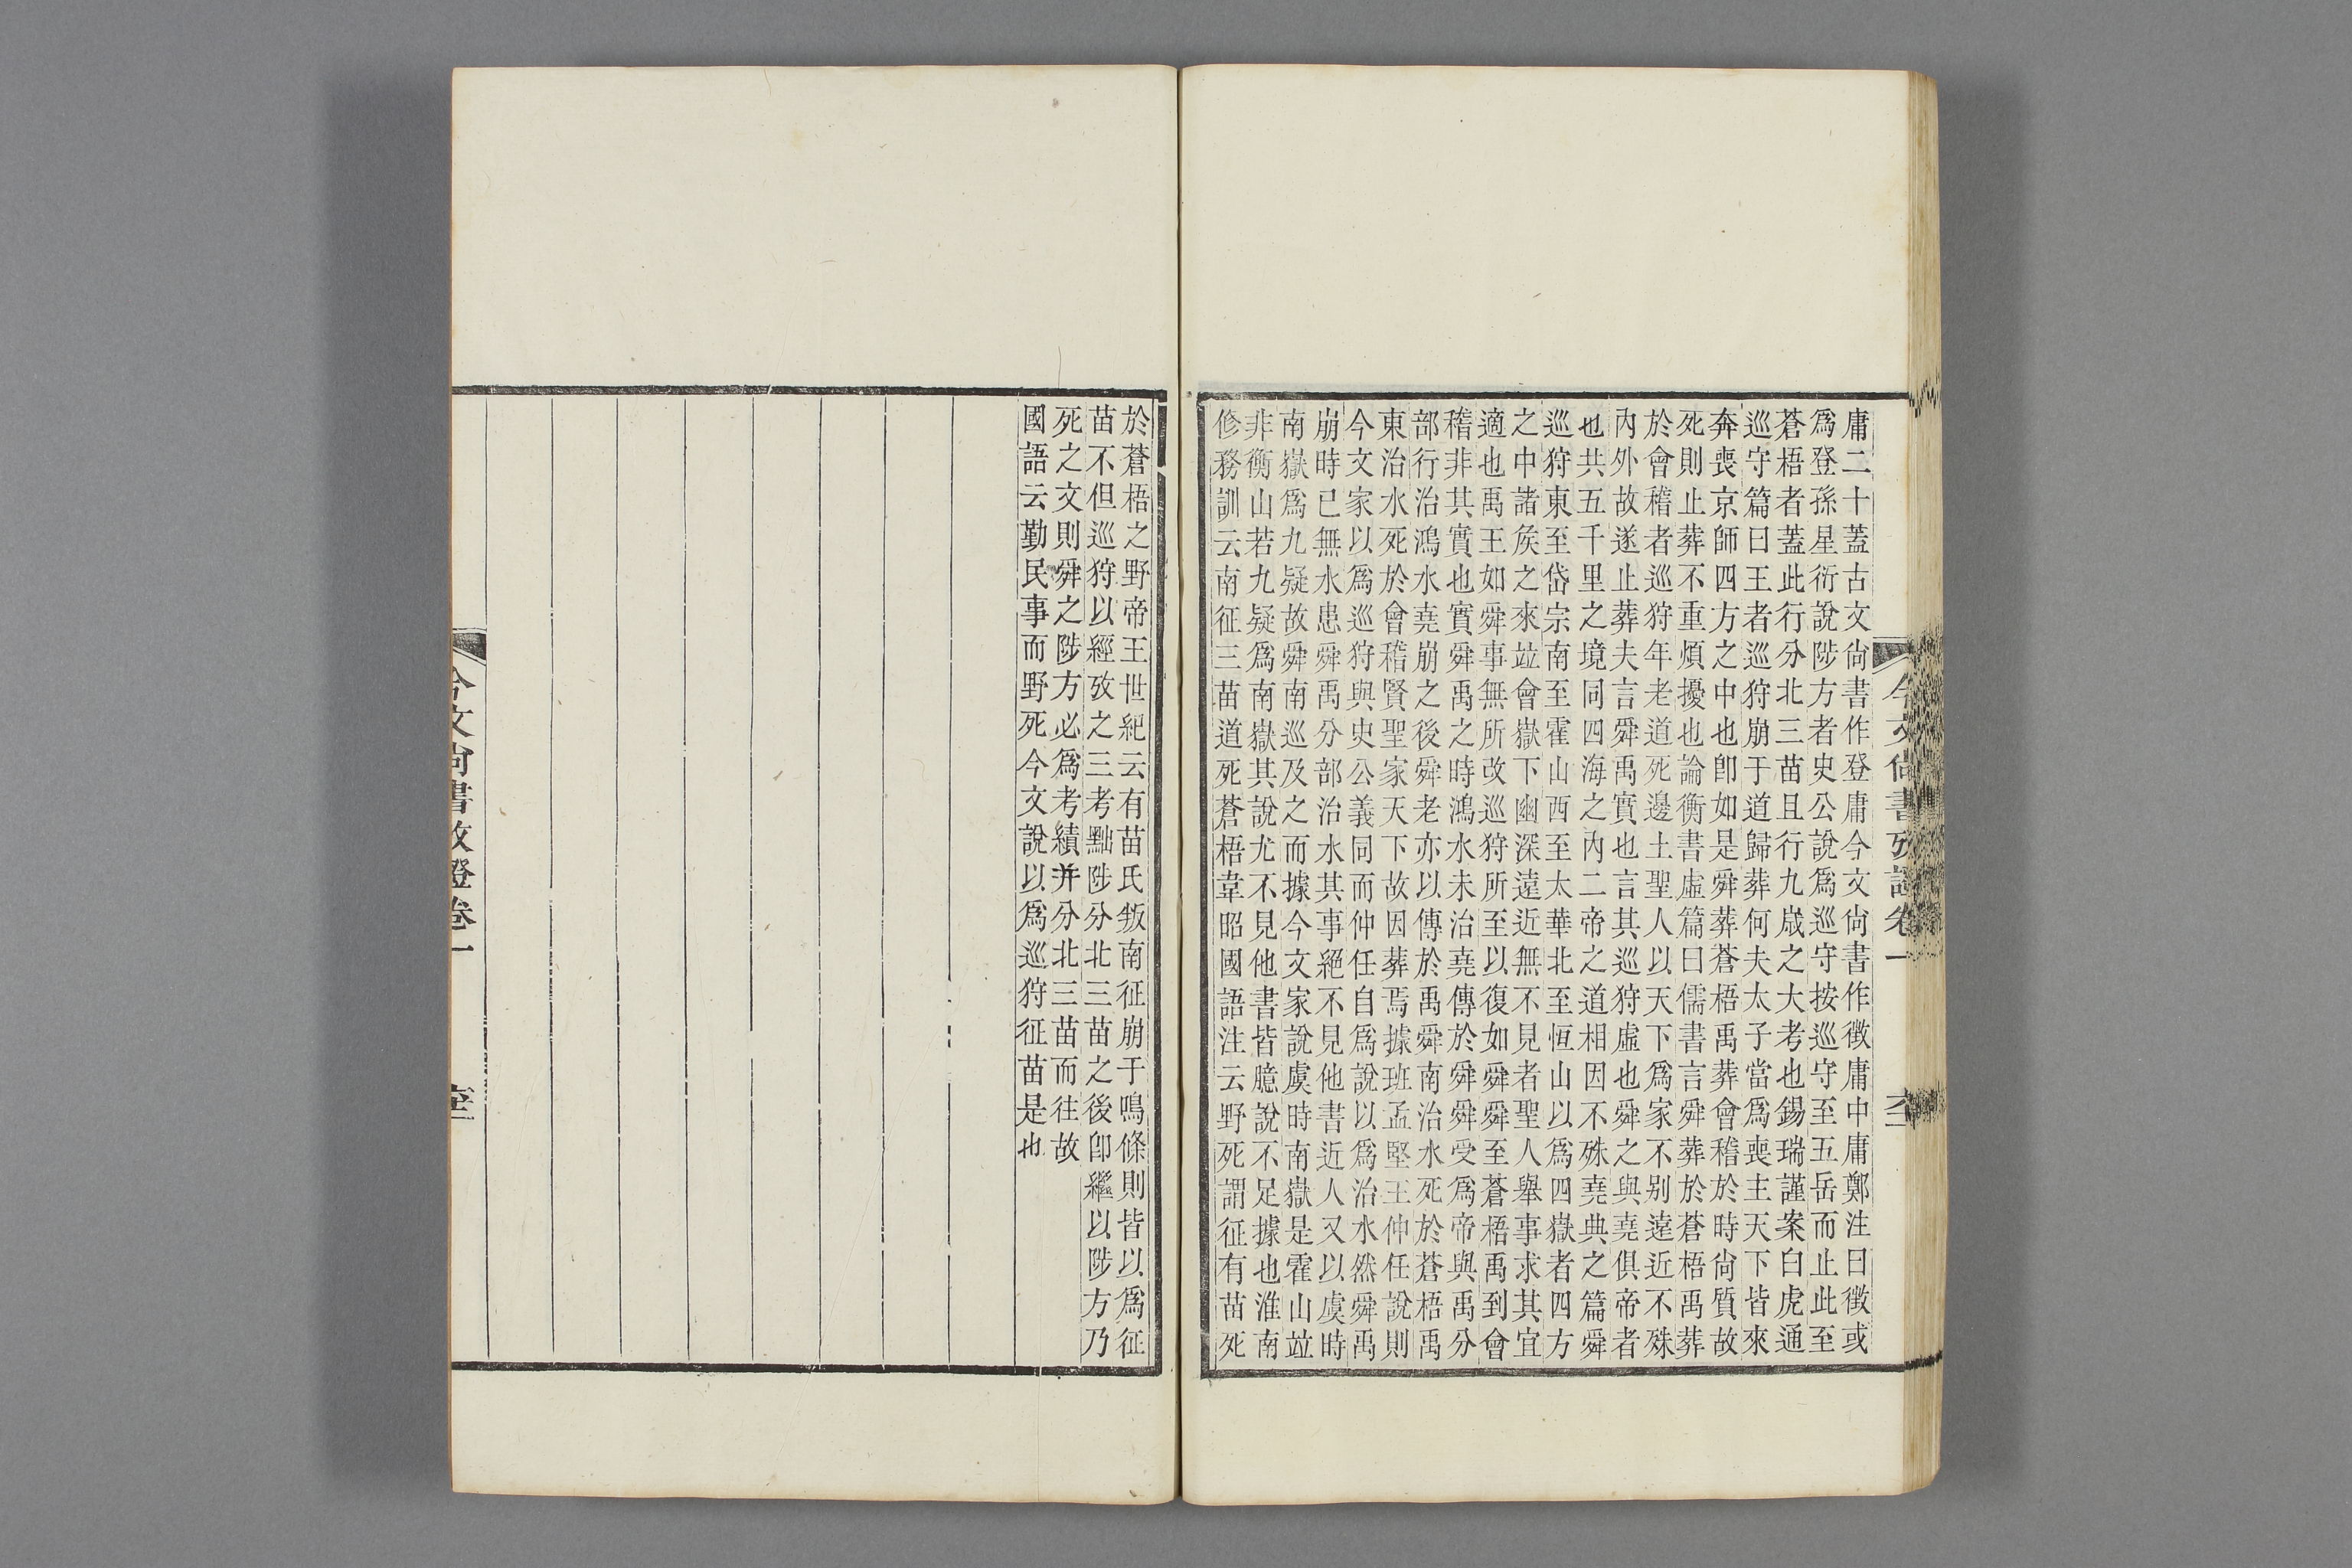 庸二十蓋古文尙書作登庸今文尙書作徵庸中庸鄭注曰徵或
爲登孫星衍說陟方者史公說爲巡守按巡守至五岳而止此至
蒼梧者蓋此行分北三苗且行九歲之大考也錫瑞謹案白虎通
巡守篇曰王者巡狩崩于道歸葬何夫太子當爲喪主天下皆來
奔喪京師四方之中也卽如是舜葬蒼梧禹葬會稽於時尙質故
死則止葬不重煩擾也論衡書虛篇曰儒書言舜葬於蒼梧禹葬
於會稽者巡狩年老道死邊土聖人以天下爲家不别遠近不殊
內外故遂止葬夫言舜禹實也言其巡狩虛也舜之與堯俱帝者
也共五千里之境同四海之內二帝之道相因不殊堯典之篇舜
巡狩東至岱宗南至霍山西至太華北至恒山以爲四嶽者四方
之中諸矦之來竝會嶽下幽深遠近無不見者聖人舉事求其宜
適也禹王如舜事無所改巡狩所至以復如舜舜至蒼梧禹到會
稽非其實也實舜禹之時鴻水未治堯傳於舜舜受爲帝與禹分
部行治鴻水堯崩之後舜老亦以傳於禹舜南治水死於蒼梧禹
東治水死於會稽賢聖家天下故因葬焉據班孟堅王仲任說則
今文家以爲巡狩與史公義同而仲任自爲說以爲治水然舜禹
崩時已無水患舜禹分部治水其事絕不見他書近人又以虞時
南嶽爲九疑故舜南巡及之而據今文家說虞時南嶽是霍山竝
非衡山若九疑爲南嶽其說尤不見他書皆臆說不足據也淮南
修務訓云南征三苗道死蒼梧韋昭國語注云野死謂征有苗死
今文尙書攷證卷一
於蒼梧之野帝王世紀云有苗氏叛南征崩于鳴條則皆以爲征
苗不但巡狩以經攷之三考黜陟分北三苗之後卽繼以陟方乃
死之文則舜之陟方必爲考績并分北三苗而往故
國語云勤民事而野死今文說以爲巡狩征苗是也
今文尙書攷證卷一